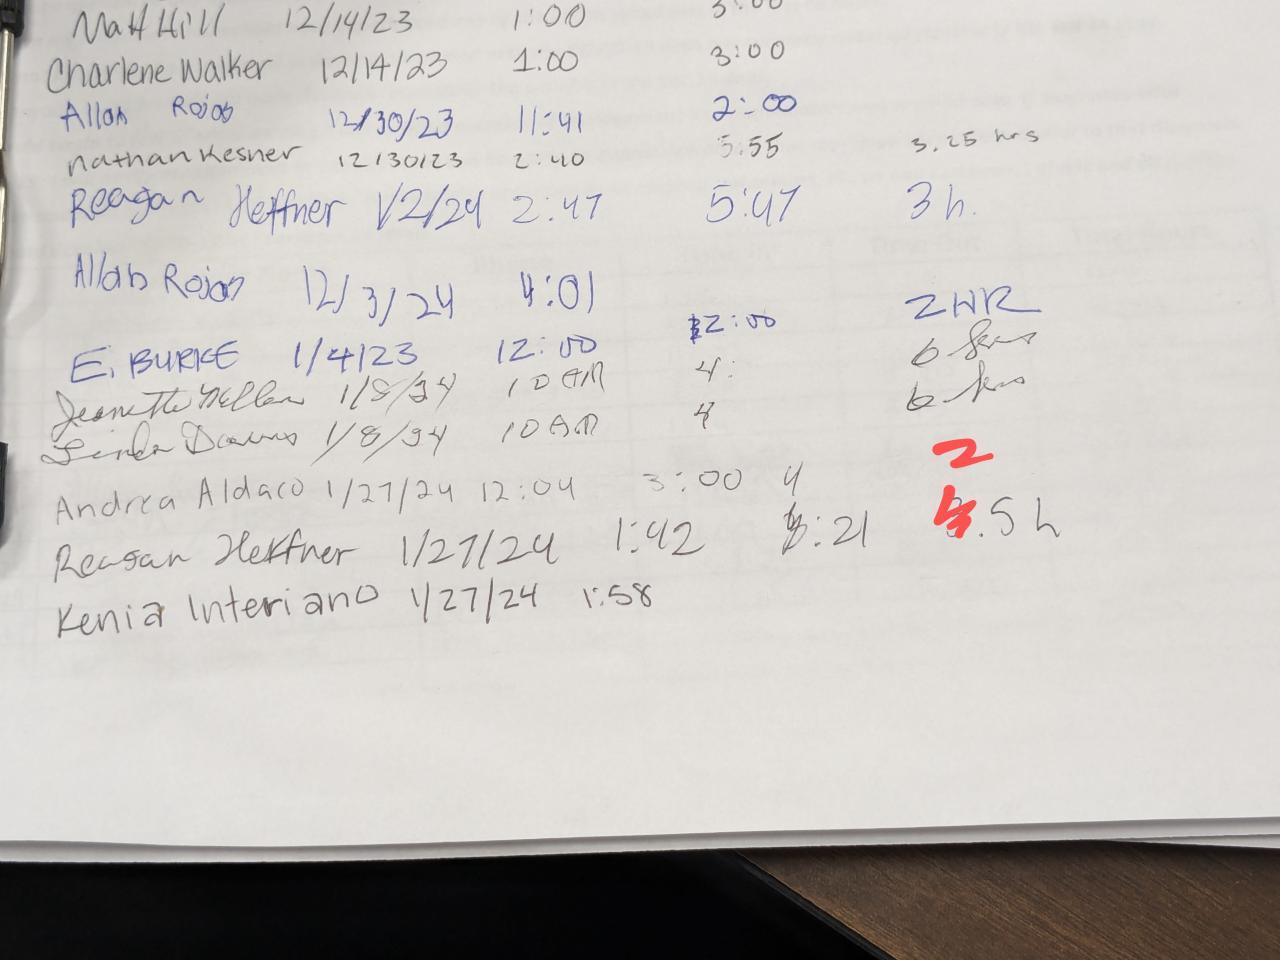 Matt Hill 12/14/23 1:00 3:00
Charlene Walker 12/14/23 1:00 3:00
Allan Rojas 12/30/23 11:41 2:00
nathan Kesner 12/30/23 2:40 5:55 3.25 hrs
Reagan Heffner 1/2/24 2:47 5:47 3 h.
Allan Rojas 12/3/24 4:01
E. BURKE 1/4/23 12:00 2:00 2 HR
Jeanette 1/8/24 10 AM 4: 6 hrs
Linda Downs 1/8/24 10 AM 4 6 hrs
2
Andrea Aldaco 1/27/24 12:04 3:00 4
Reagan Heffner 1/27/24 1:42 :21 .5 h
Kenia Interiano 1/27/24 1:58